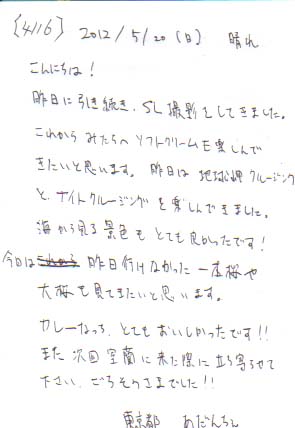 [4116] 2012/5/20(日) 晴れ
こんにちは!
昨日に引き続き、SL撮影をしてきました。
これから みたらへ ソフトクリームを楽しんで
きたいと思います。昨日は 地球岬クルージング
と、ナイトクルージングを楽しんできました。
海から見る景色も とても良かったです!
今日は 昨日行けなかった 一本桜や
大桜も見てきたいと思います。
カレーなっつ、とてもおいしかったです!!
また 次回 室蘭に来た際に立ち寄らせて
下さい。ごちそうさまでした!!
東京都 あだんちぇ